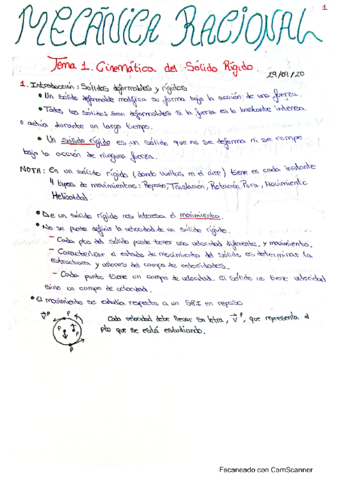 1
MECÁNICA RACIONAL
Tema 1. Cinemática del Sólido Rígido.
29/09/20
1. Introducción: Sólidos deformables y rígidos
• Un sólido deformable modifica su forma bajo la acción de una fuerza.
• Todos los sólidos son deformables si la fuerza es lo bastante intensa
o actúa durante un largo tiempo.
• Un sólido rígido es un sólido que no se deforma ni se rompe
bajo la acción de ninguna fuerza.
NOTA: En un sólido rígido (dando vueltas en el aire) tiene en cada instante
4 tipos de movimientos: Reposo, Traslación, Rotación Pura, Movimiento
Helicoidal.
• De un sólido rígido nos interesa el movimiento.
• No se puede definir la velocidad de un sólido rígido.
- Cada pto del sólido puede tener una velocidad diferente, y movimiento.
- Caracterizar el estado de movimiento del sólido es determinar la
estructura y valores del campo de velocidades.
- Cada punto tiene un campo de velocidad. El sólido no tiene velocidad
sino un campo de velocidad.
• El movimiento se estudia respecto a un SRI en reposo
Cada velocidad debe llevar su letra, v⃗ᴾ, que representa el
pto que se está estudiando.
v⃗ᴾ
P
P
P
O
Escaneado con CamScanner